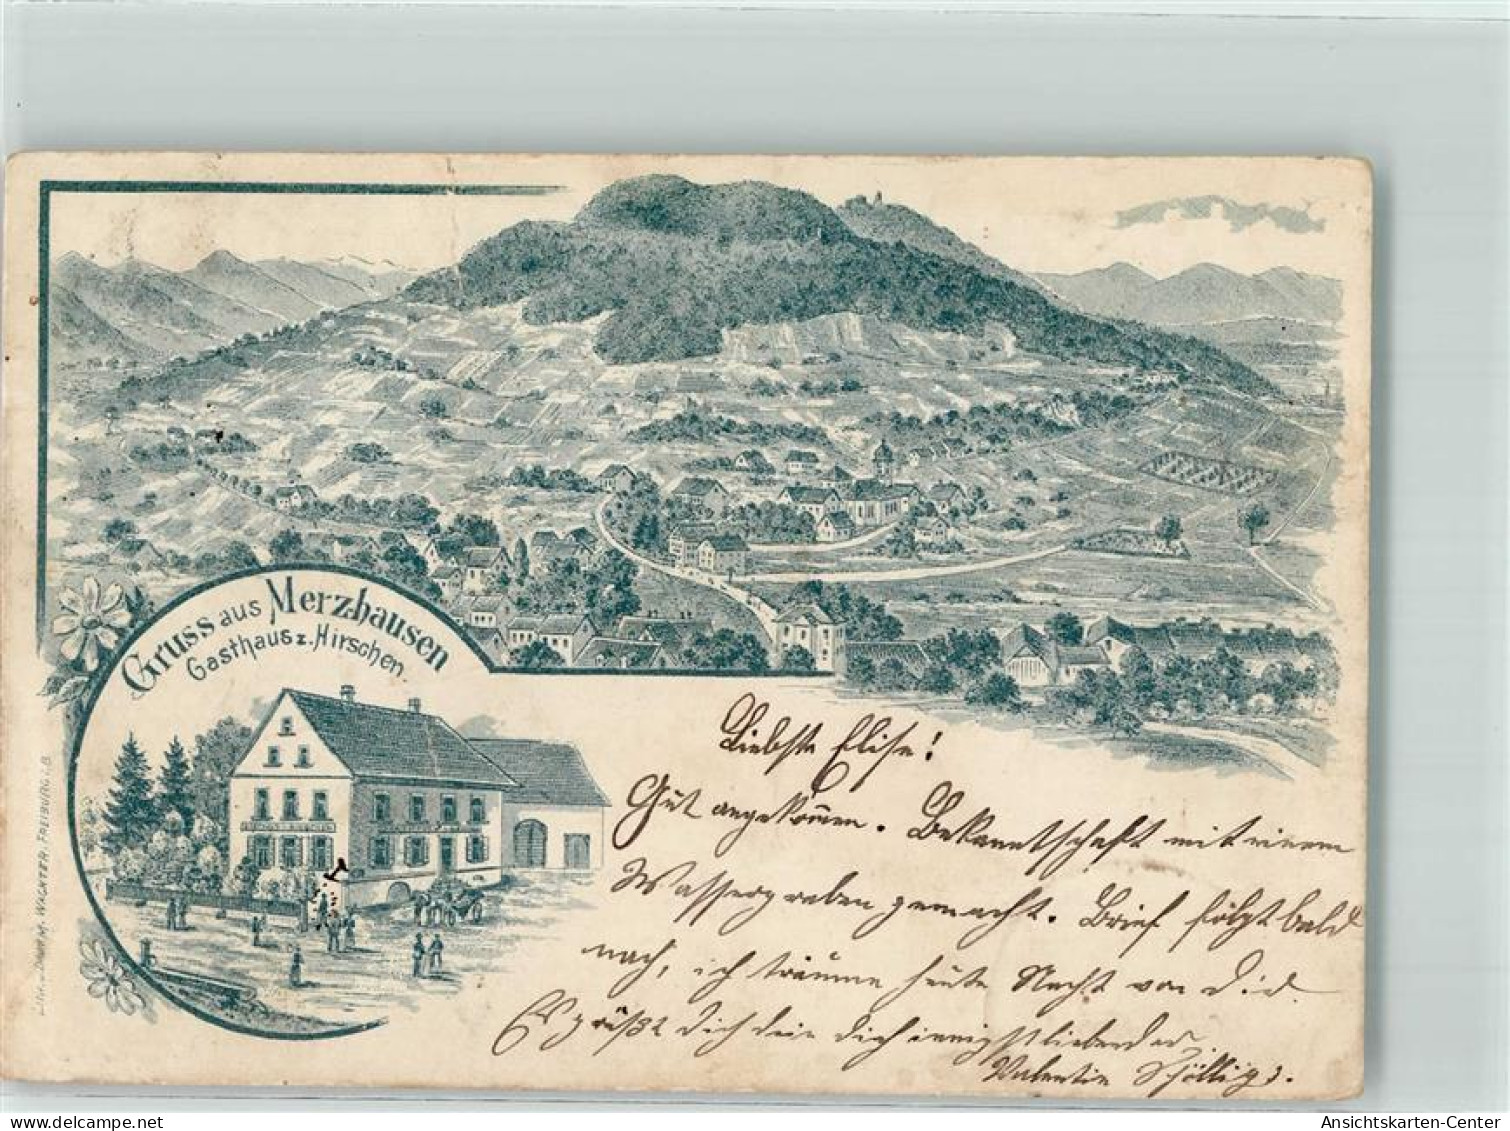 Gruss aus Merzhausen
Gasthaus z. Hirschen.
Liebste Elise!
Gut angekommen. Bekanntschaft mit einem
Wassergraben gemacht. Brief folgt bald
nach, ich träume heute Nacht von Dir.
Es grüßt Dich Dein Dich innigstliebender
Valentin
DRUCK M. WÄCHTER, FREIBURG i.B.
AnsichtsKarten-Center